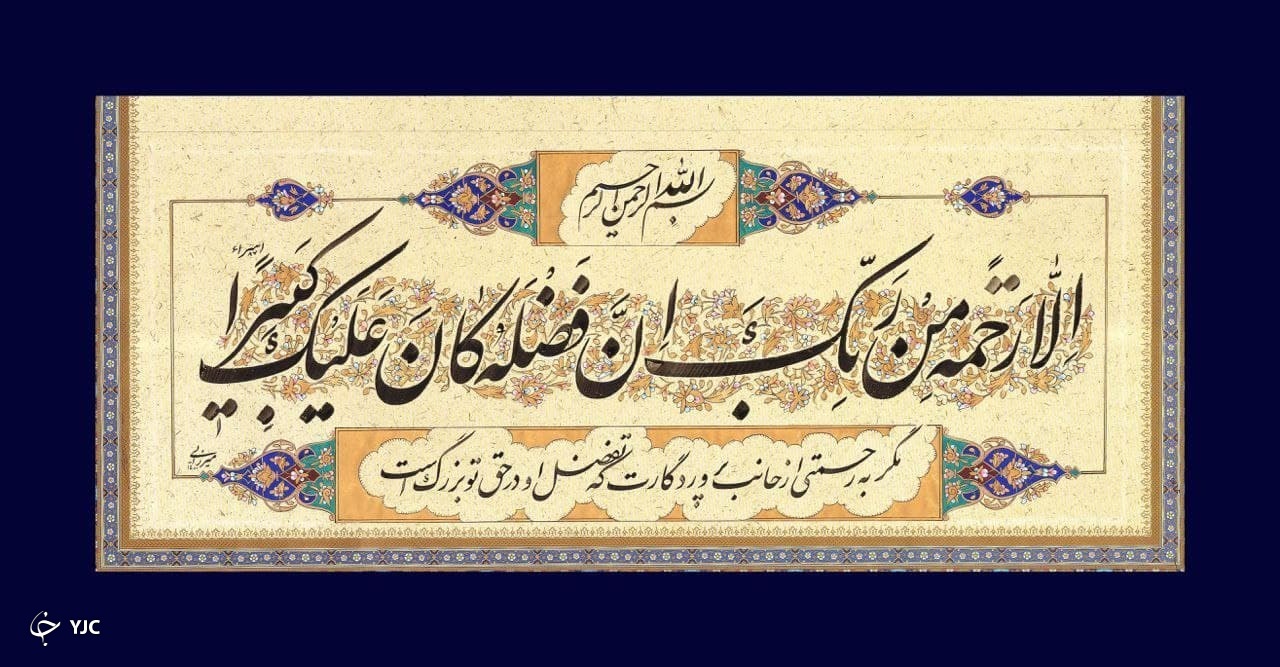 بسم الله الرحمن الرحیم
اسراء
اِلّا رَحمَةً مِن رَبِّکَ اِنَّ فَضْلَهُ کانَ عَلَیْکَ کَبیرًا
مگر به رحمتی از جانب پروردگارت که تفضل او در حق تو بزرگ است
YJC